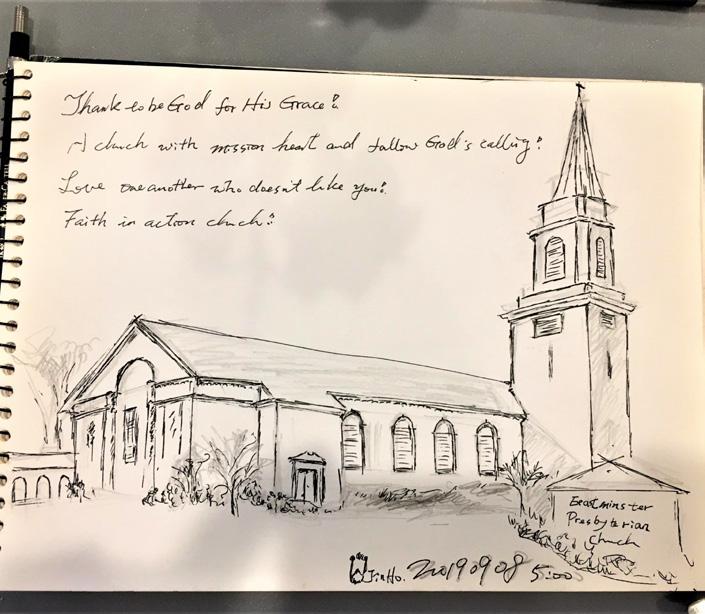 Thank to be God for His Grace!
A church with mission heart and follow God's calling!
Love one another who doesn't like you!
Faith in action church!
Eeastminster
Presbyterian
Church
JinHo. 20190908 5:00